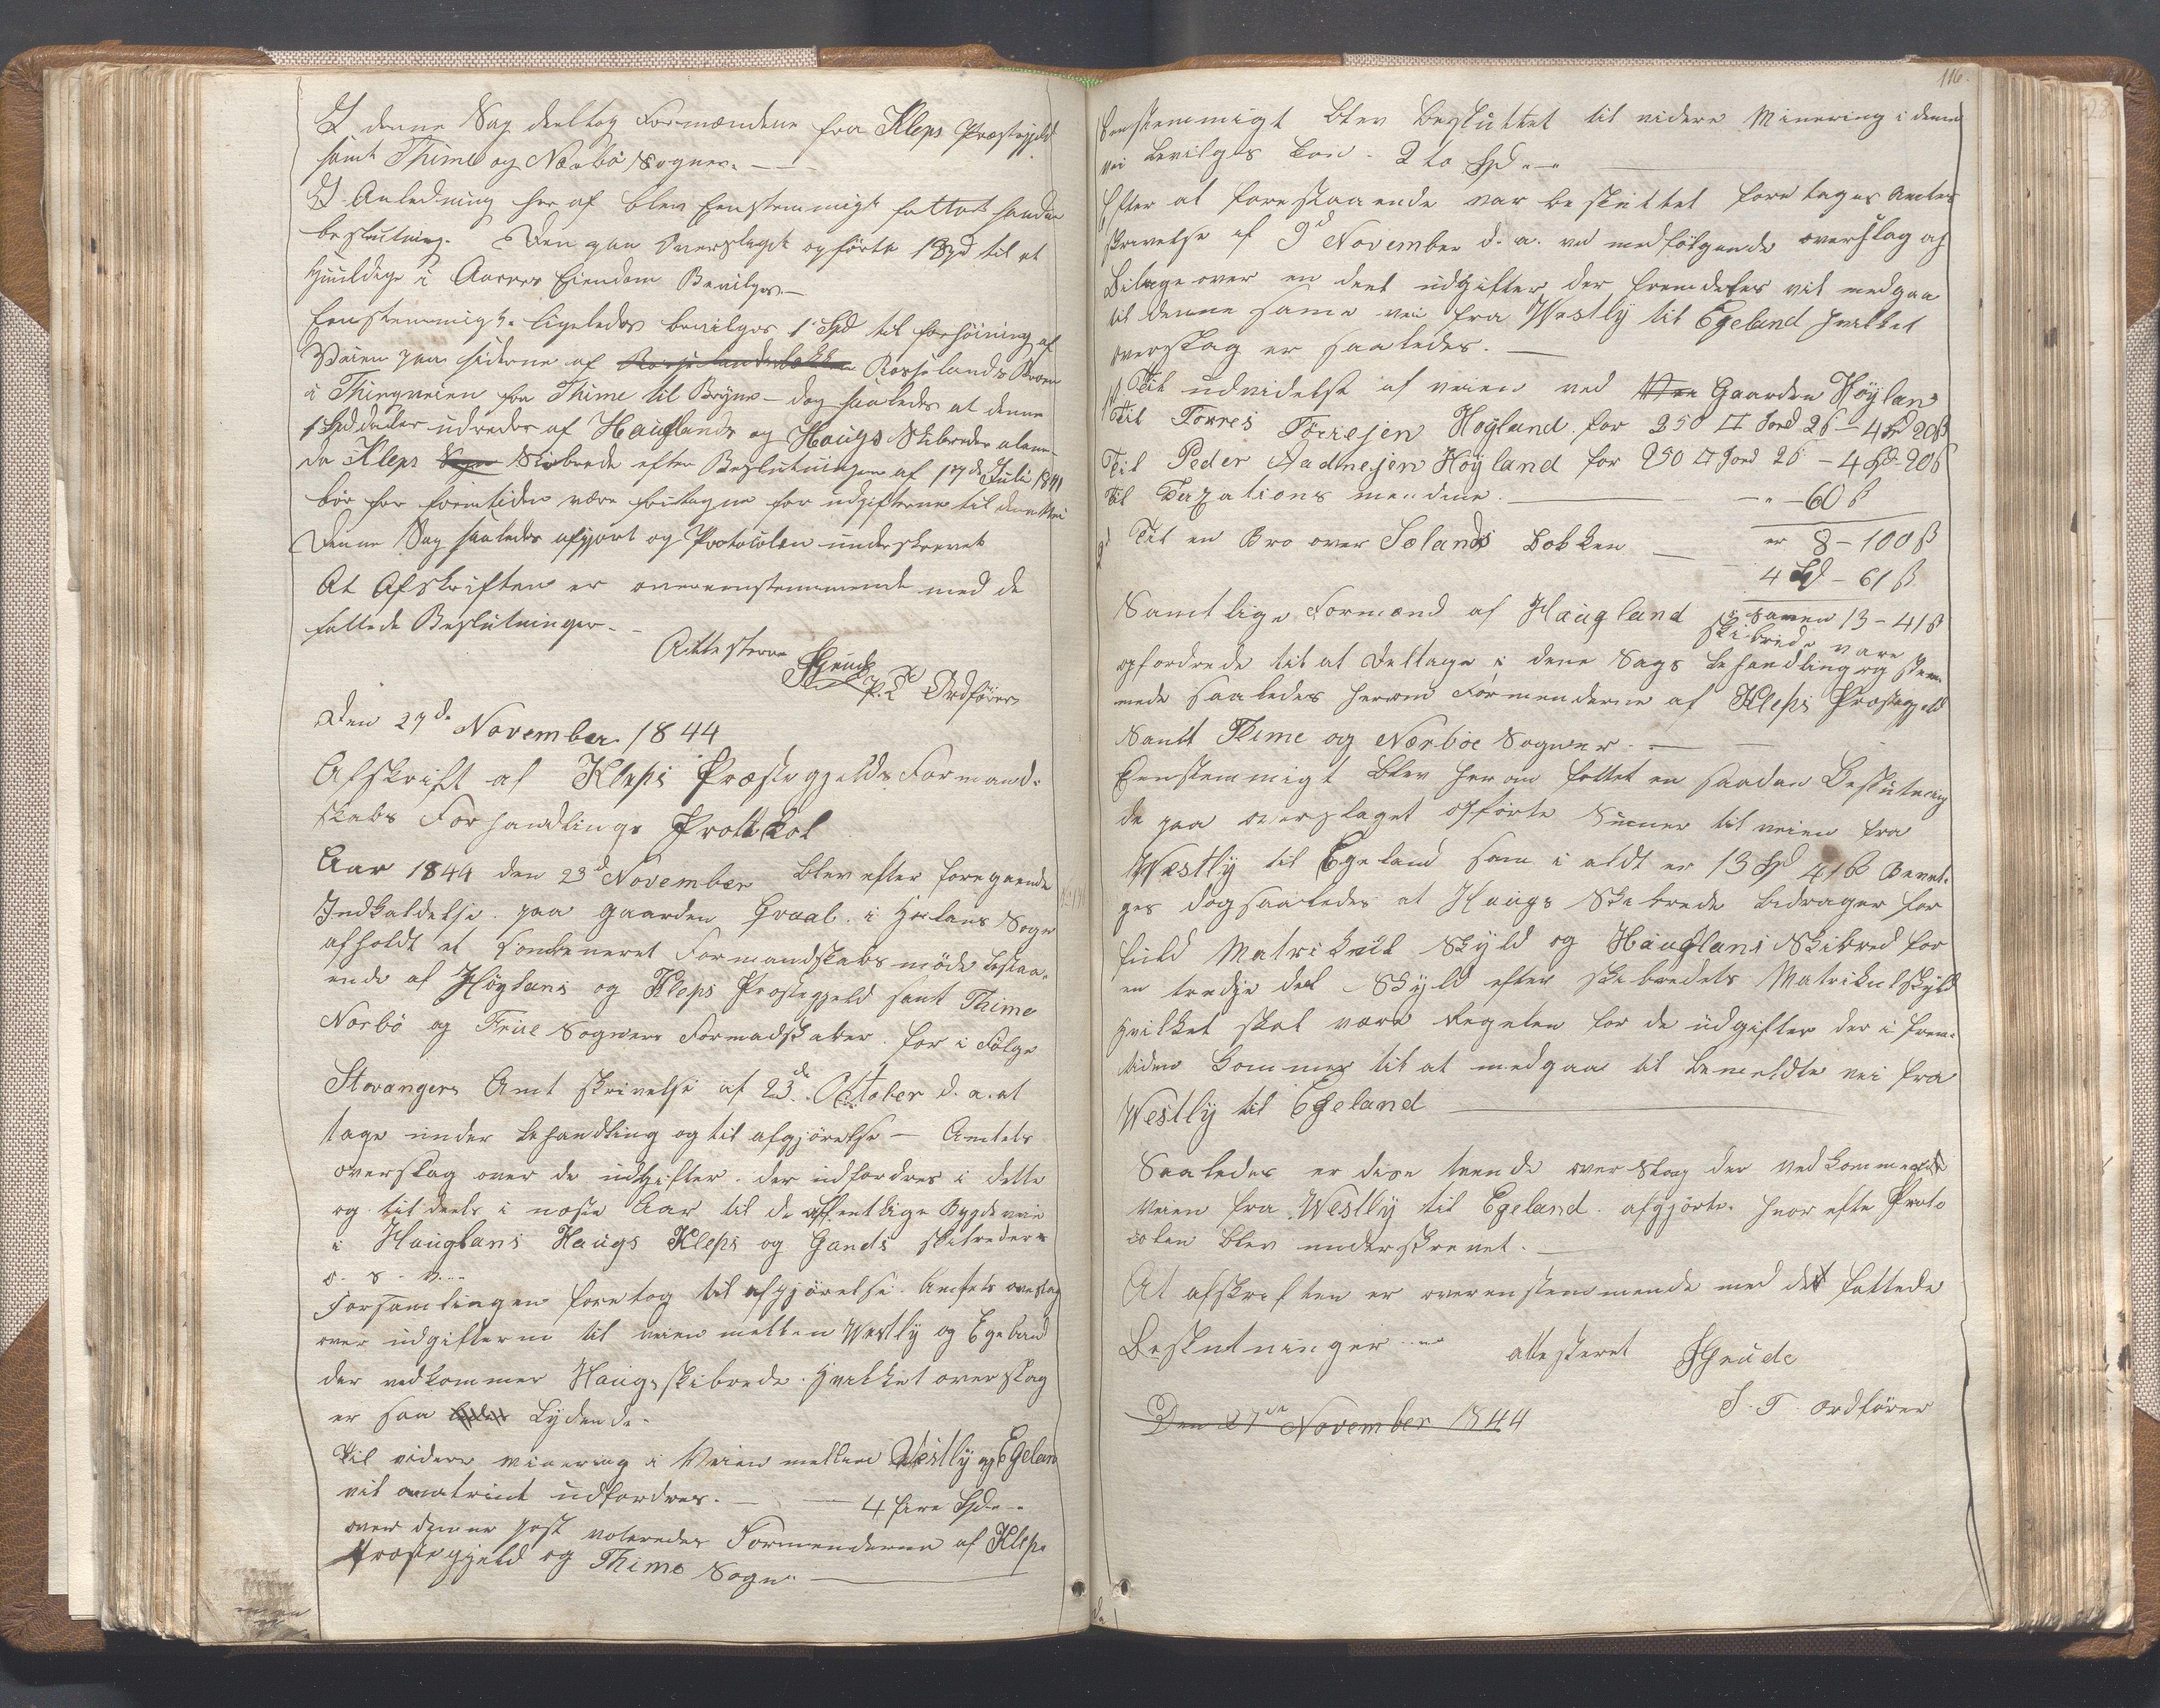 I denne Sag deeltog Formændene fra Kleps Præstegjeld
samt Thime og Nærbø Sogner. —
I Anledning her af blev Eenstemmigt fattet saadan
beslutning. Den paa Overslaget opførte 1 Spd til et
i Aarres Eiendom Bevilges.—
Eenstemmigt ligeledes bevilges 1 Spd til forhøining af
Veien paa siderne af Rosselands Broen
i Thingveien fra Thime til Bryne — dog saaledes at denne
1 Spd daler udredes af Hauglands og Haugs Skibreder alene
da Kleps Skibrede efter Beslutningen af 17de Juli 1841
bør for fremtiden være fritagne for udgifterne til denne Vei
Denne Sag saaledes afgjort og Protocolen underskrevet
At Afskriften er overeensstemmende med de
fattede Beslutninger. —
Attesteres
Ordfører
Den 27de November 1844
Afskrift af Kleps Præstegjelds Formand-
skabs Forhandlings Protokol
Aar 1844 den 23d November blev efter foregaaende
Indkaldelse paa gaarden Graal. i Høilans Sogn
afholdt et Combineret Formandskabs møde bestaa-
ende af Höylans og Kleps Prostegjeld samt Thime
Norbö og Frue Sogners Formadskaber. for i Følge
Stavangers Amt skrivelse af 23de October d. a. at
tage under behandling og til afgjörelse — Amtets
overslag over de udgifter. der udfordres i dette
og tildeels i næste Aar til de offentlige Bygdeveie
i Hauglans Haugs Kleps og Gands skibreder
o. s. v. ..
Forsamlingen foretog til afgjörelse. Amtets overslag
over udgifterne til veien mellem Westly og Egeland
der vedkommer Haugs skibrede. hvilket overslag
er saa Lydende.
Til videre minering i Veien mellem Vestly og Egelan
vil omtrint udfordres. — — 4 fire Spd. —
over denne post voteredes Formenderne af Kleps
Prostegjeld og Thime Sogn. —
116.
Eenstemmigt blev besluttet til videre Minering i denne
vei bevilges kun. 2 to Spd. —
Efter at forestaaende var besluttet foretages Amtes
skrivelse af 9d November d. a. med medfölgende overslag og
Bilage over en deel udgifter der fremdeles vil medgaa
til denne samme vei fra Westly til Egeland hvilket
overslag er saaledes. —
1st Til udvidelse af veien ved Gaarden Höylan
Til Torres Torresen Höyland for 250 □ Jord 26 — 4 Spd 20 ß
Til Peder Aadnesen Höyland for 250 □ Jord 26 — 4 Spd 20 ß
Til Taxations mendene. — — " — 60 ß
er 8 — 100 ß
2d Til en Bro over Solands Bekken — 4 Spd — 61 ß
Samen 13 — 41 ß
Samtlige Formænd af Haugland Skibrede vare
opfordrede til at Deltage i dene Sags behandling og stem-
mede saaledes herom Formenderne af Kleps Prostegjeld
Samt Time og Nærböe Sogner. —
Eenstemmigt blev herom fattet en saadan Beslutning
de paa overslaget opförte Sumer til veien fra
Westly til Egeland som i aldt er 13 Spd 41 ß Bevil-
ges dog saaledes at Haugs Skibrede bidrager for
fuld Matrikul Skyld og Hauglans Skibred for
en tredje del Skyld efter skibredets Matrikulskyld
hvilket skal være Regelen for de udgifter der i frem-
tiden kommer til at medgaa til bemeldte vei fra
Westly til Egeland —
Saaledes er disse tvende overslag der vedkommer
veien fra Westly til Egeland. afgjörte. hvor efter Proto
colen blev underskrevet. —
At afskriften er overenstemmende med de fattede
Beslutninger
attesteret
S. T. Ordförer
Den 27de November 1844